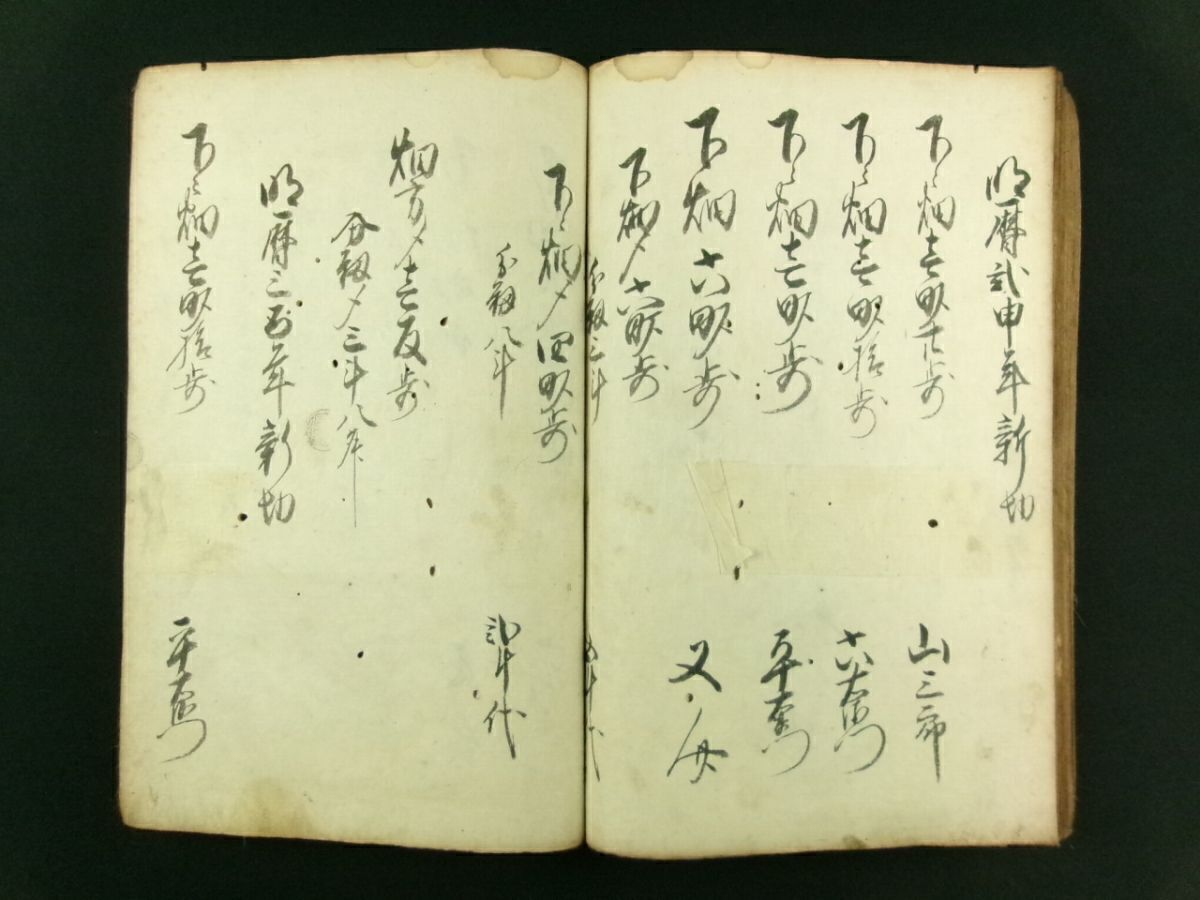 明暦弐申年新切
下々畑壱畝廿歩 山三郎
下々畑壱畝拾歩 六右衛門
下々畑壱畝歩
下畑六畝歩 又
下畑〆六畝歩
分米三斗 五斗代
下々畑〆四畝歩
分米八斗 弐斗代
畑方〆壱反歩
分米〆三斗八升
明暦三酉年新切
下々畑壱畝拾歩 平右衛門